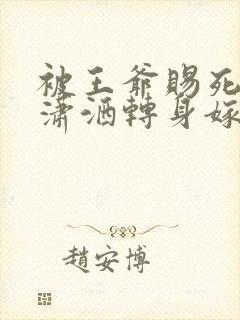 被王爺賜死
瀟洒轉身嫁
趙安博